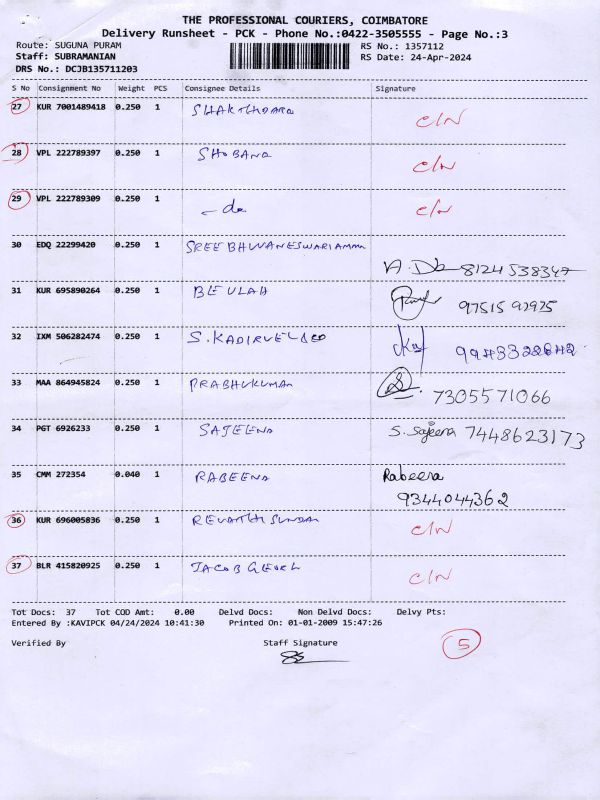 THE PROFESSIONAL COURIERS, COIMBATORE
Delivery Runsheet - PCK - Phone No.:0422-3505555 - Page No.:3
Route: SUGUNA PURAM RS No.: 1357112
Staff: SUBRAMANIAN RS Date: 24-Apr-2024
DRS No.: DCJB135711203
S No Consignment No Weight PCS Consignee Details Signature
27 KUR 7001489418 0.250 1 C/N
28 VPL 222789397 0.250 1 SHOBANA C/N
29 VPL 222789309 0.250 1 - do C/N
30 EDQ 22299420 0.250 1 SREE BHUVANESWARIAMMAN 8124538347
31 KUR 695890264 0.250 1 BEULAH 97515
32 IXM 506282474 0.250 1 S. KADIRVEL
33 MAA 864945824 0.250 1 PRABHUKUMAR 7305571066
34 PGT 6926233 0.250 1 SAJEENA S. Sajeena 7448623173
35 CMM 272354 0.040 1 RABEENA Rabeena
9344044362
36 KUR 696005836 0.250 1 REVATHI SUNDAR C/N
37 BLR 415820925 0.250 1 JACOB C/N
Tot Docs: 37 Tot COD Amt: 0.00 Delvd Docs: Non Delvd Docs: Delvy Pts:
Entered By :KAVIPCK 04/24/2024 10:41:30 Printed On: 01-01-2009 15:47:26
Verified By Staff Signature
5